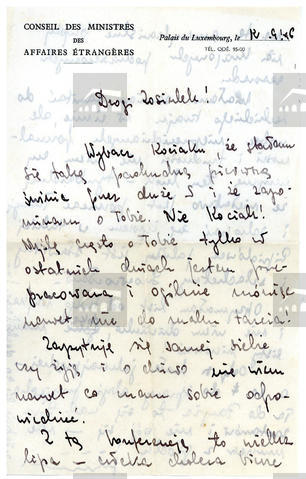 CONSEIL DES MINISTRES
DES
AFFAIRES ÉTRANGÈRES
Palais du Luxembourg, le
TÉL. ODÉ. 95-00
Drogi
Wybacz Kociaku, że stałam
się taką paskudną pierwszą
świnią przez duże S i że zapo-
minam o Tobie. Nie Kociak!
Myślę często o Tobie tylko w
ostatnich dniach jestem prze-
pracowana i ogólnie mówiąc
nawet nie do
Zapytuję się samej siebie
czy żyję i o dziwo nie wiem
nawet co mam sobie odpo-
wiedzieć.
Z tą konferencją to wielka
lipa – cholera